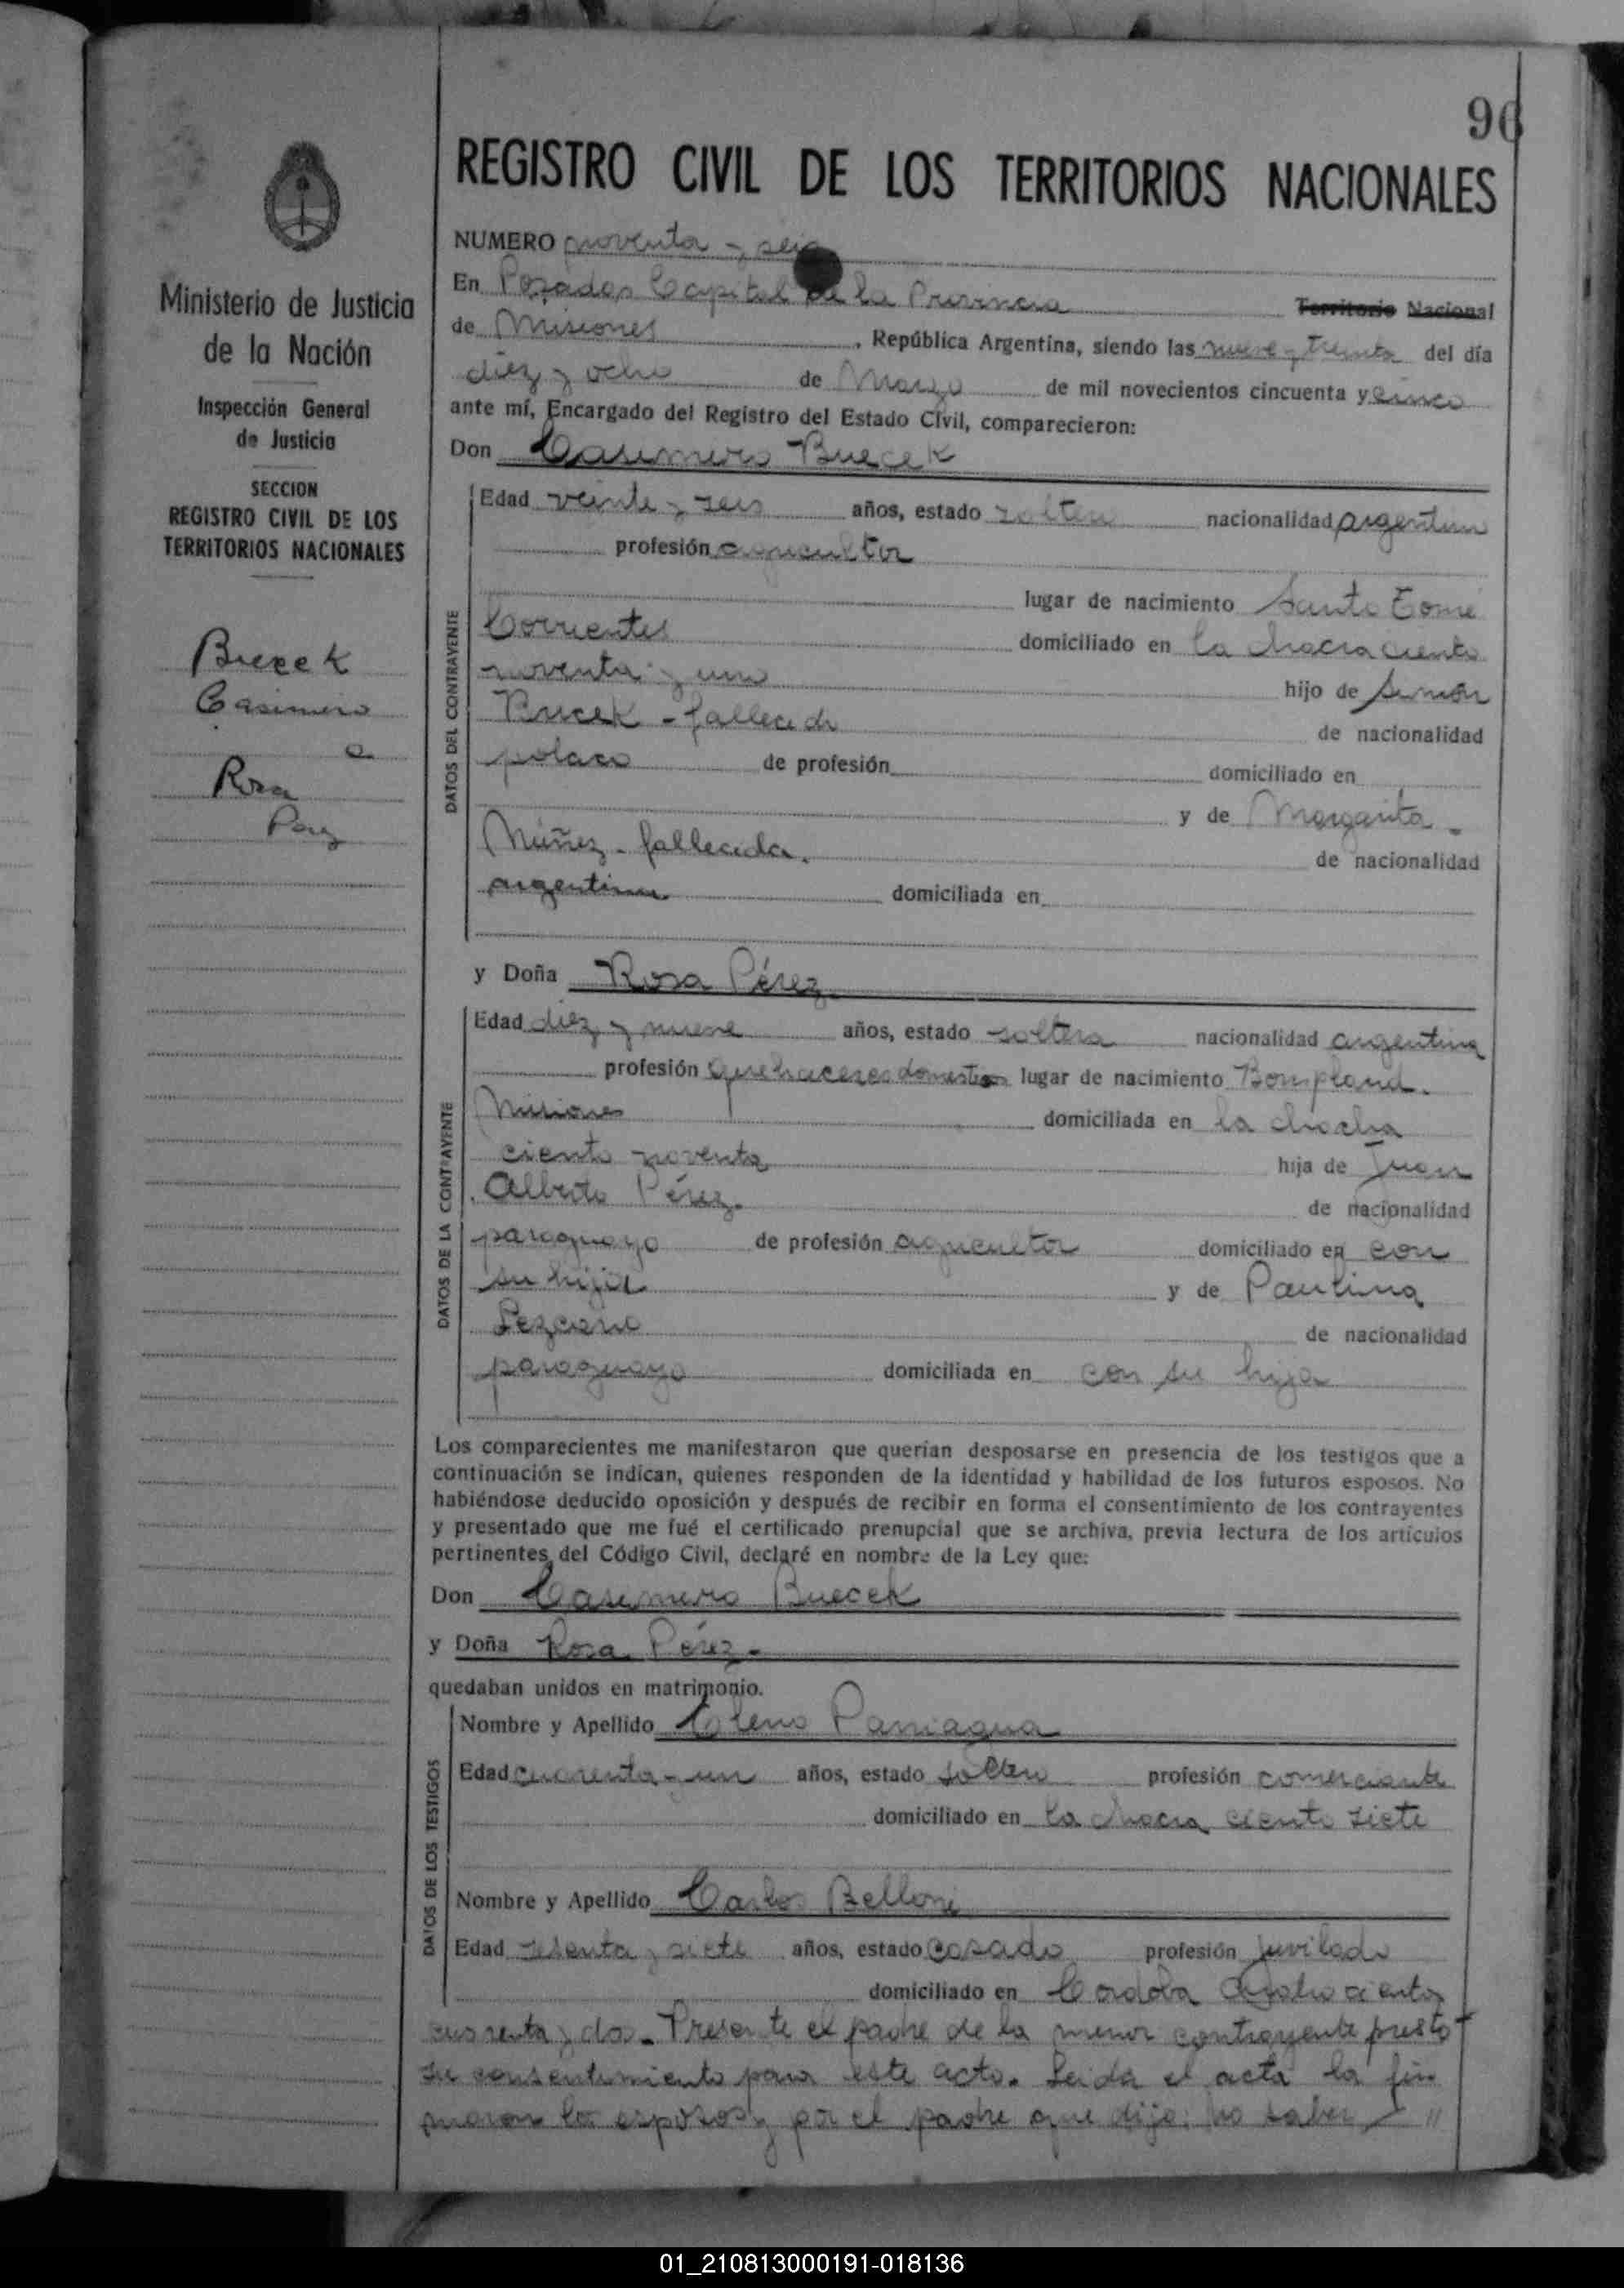 96
REGISTRO CIVIL DE LOS TERRITORIOS NACIONALES
Ministerio de Justicia
de la Nación
Inspección General
de Justicia
SECCION
REGISTRO CIVIL DE LOS
TERRITORIOS NACIONALES
Buecek
Casimero
e
Rosa
Perez
NUMERO noventa y seis
En Posadas Capital de la Provincia Territorio Nacional
de Misiones, República Argentina, siendo las nueve y treinta del día
diez y ocho de Marzo de mil novecientos cincuenta y cinco
ante mí, Encargado del Registro del Estado Civil, comparecieron:
Don Casimero Buecek
DATOS DEL CONTRAYENTE
Edad veinte y seis años, estado soltero nacionalidad argentino
profesión agricultor
lugar de nacimiento Santo Tomé
Corrientes domiciliado en la chacra ciento
noventa y uno hijo de Simón
Bucek - fallecido de nacionalidad
polaco de profesión domiciliado en
y de Margarita
Núñez - fallecida. de nacionalidad
argentina domiciliada en
y Doña Rosa Pérez
DATOS DE LA CONTRAYENTE
Edad diez y nueve años, estado soltera nacionalidad argentina
profesión quehaceres domesticos lugar de nacimiento Bompland.
Misiones domiciliada en la chacra
ciento noventa hija de Juan
Alberto Pérez. de nacionalidad
paraguayo de profesión agricultor domiciliado en con
su hija y de Paulina
Lezcano de nacionalidad
paraguaya domiciliada en con su hija
Los comparecientes me manifestaron que querían desposarse en presencia de los testigos que a
continuación se indican, quienes responden de la identidad y habilidad de los futuros esposos. No
habiéndose deducido oposición y después de recibir en forma el consentimiento de los contrayentes
y presentado que me fué el certificado prenupcial que se archiva, previa lectura de los artículos
pertinentes del Código Civil, declaré en nombre de la Ley que:
Don Casimero Buecek
y Doña Rosa Pérez -
quedaban unidos en matrimonio.
DATOS DE LOS TESTIGOS
Nombre y Apellido Paniagua
Edad cuarenta y un años, estado soltero profesión comerciante
domiciliado en la chacra ciento siete
Nombre y Apellido Carlos Belloni
Edad sesenta y siete años, estado casado profesión juvilado
domiciliado en Cordoba
cuarenta y dos. Presente el padre de la menor contrayente prestó
su consentimiento para este acto. Leida el acta la fir
maron los esposos y por el padre que dijo no saber
01_210813000191-018136